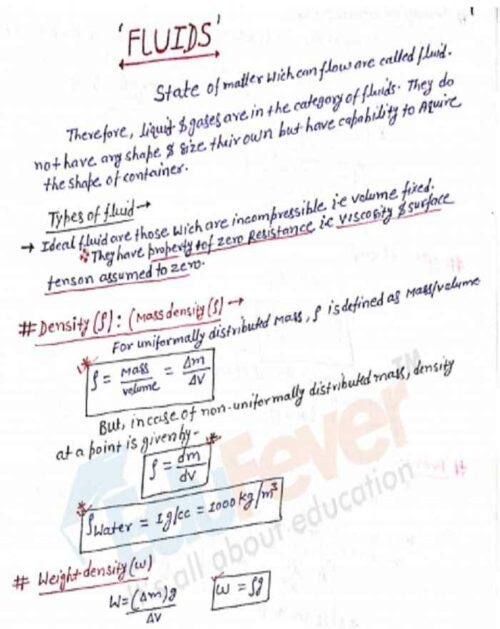 1
'FLUIDS'
State of matter Wich can flow are called fluid.
Therefore, liquid & gases are in the category of fluids. They do
not have any shape & size their own but have capability to Aquire
the shape of container.
Types of fluid →
→ Ideal fluid are those Wich are incompressible i.e volume fixed.
* They have property tof zero Resistance i.e Viscosity & surface
tenson assumed to zero.
# Density (ρ) : (Mass density (ρ) →
For uniformly distributed Mass, ρ is defined as Mass/volume
* ρ = Mass/volume = Δm/ΔV
But, in case of non-uniformly distributed mass, density
at a point is given by-
ρ = dm/dV *
* ρWater = 1g/cc = 1000 kg/m³
EduFever TM
It's all about education
# Weight density (w)
W = (Δm)g/ΔV w = ρg